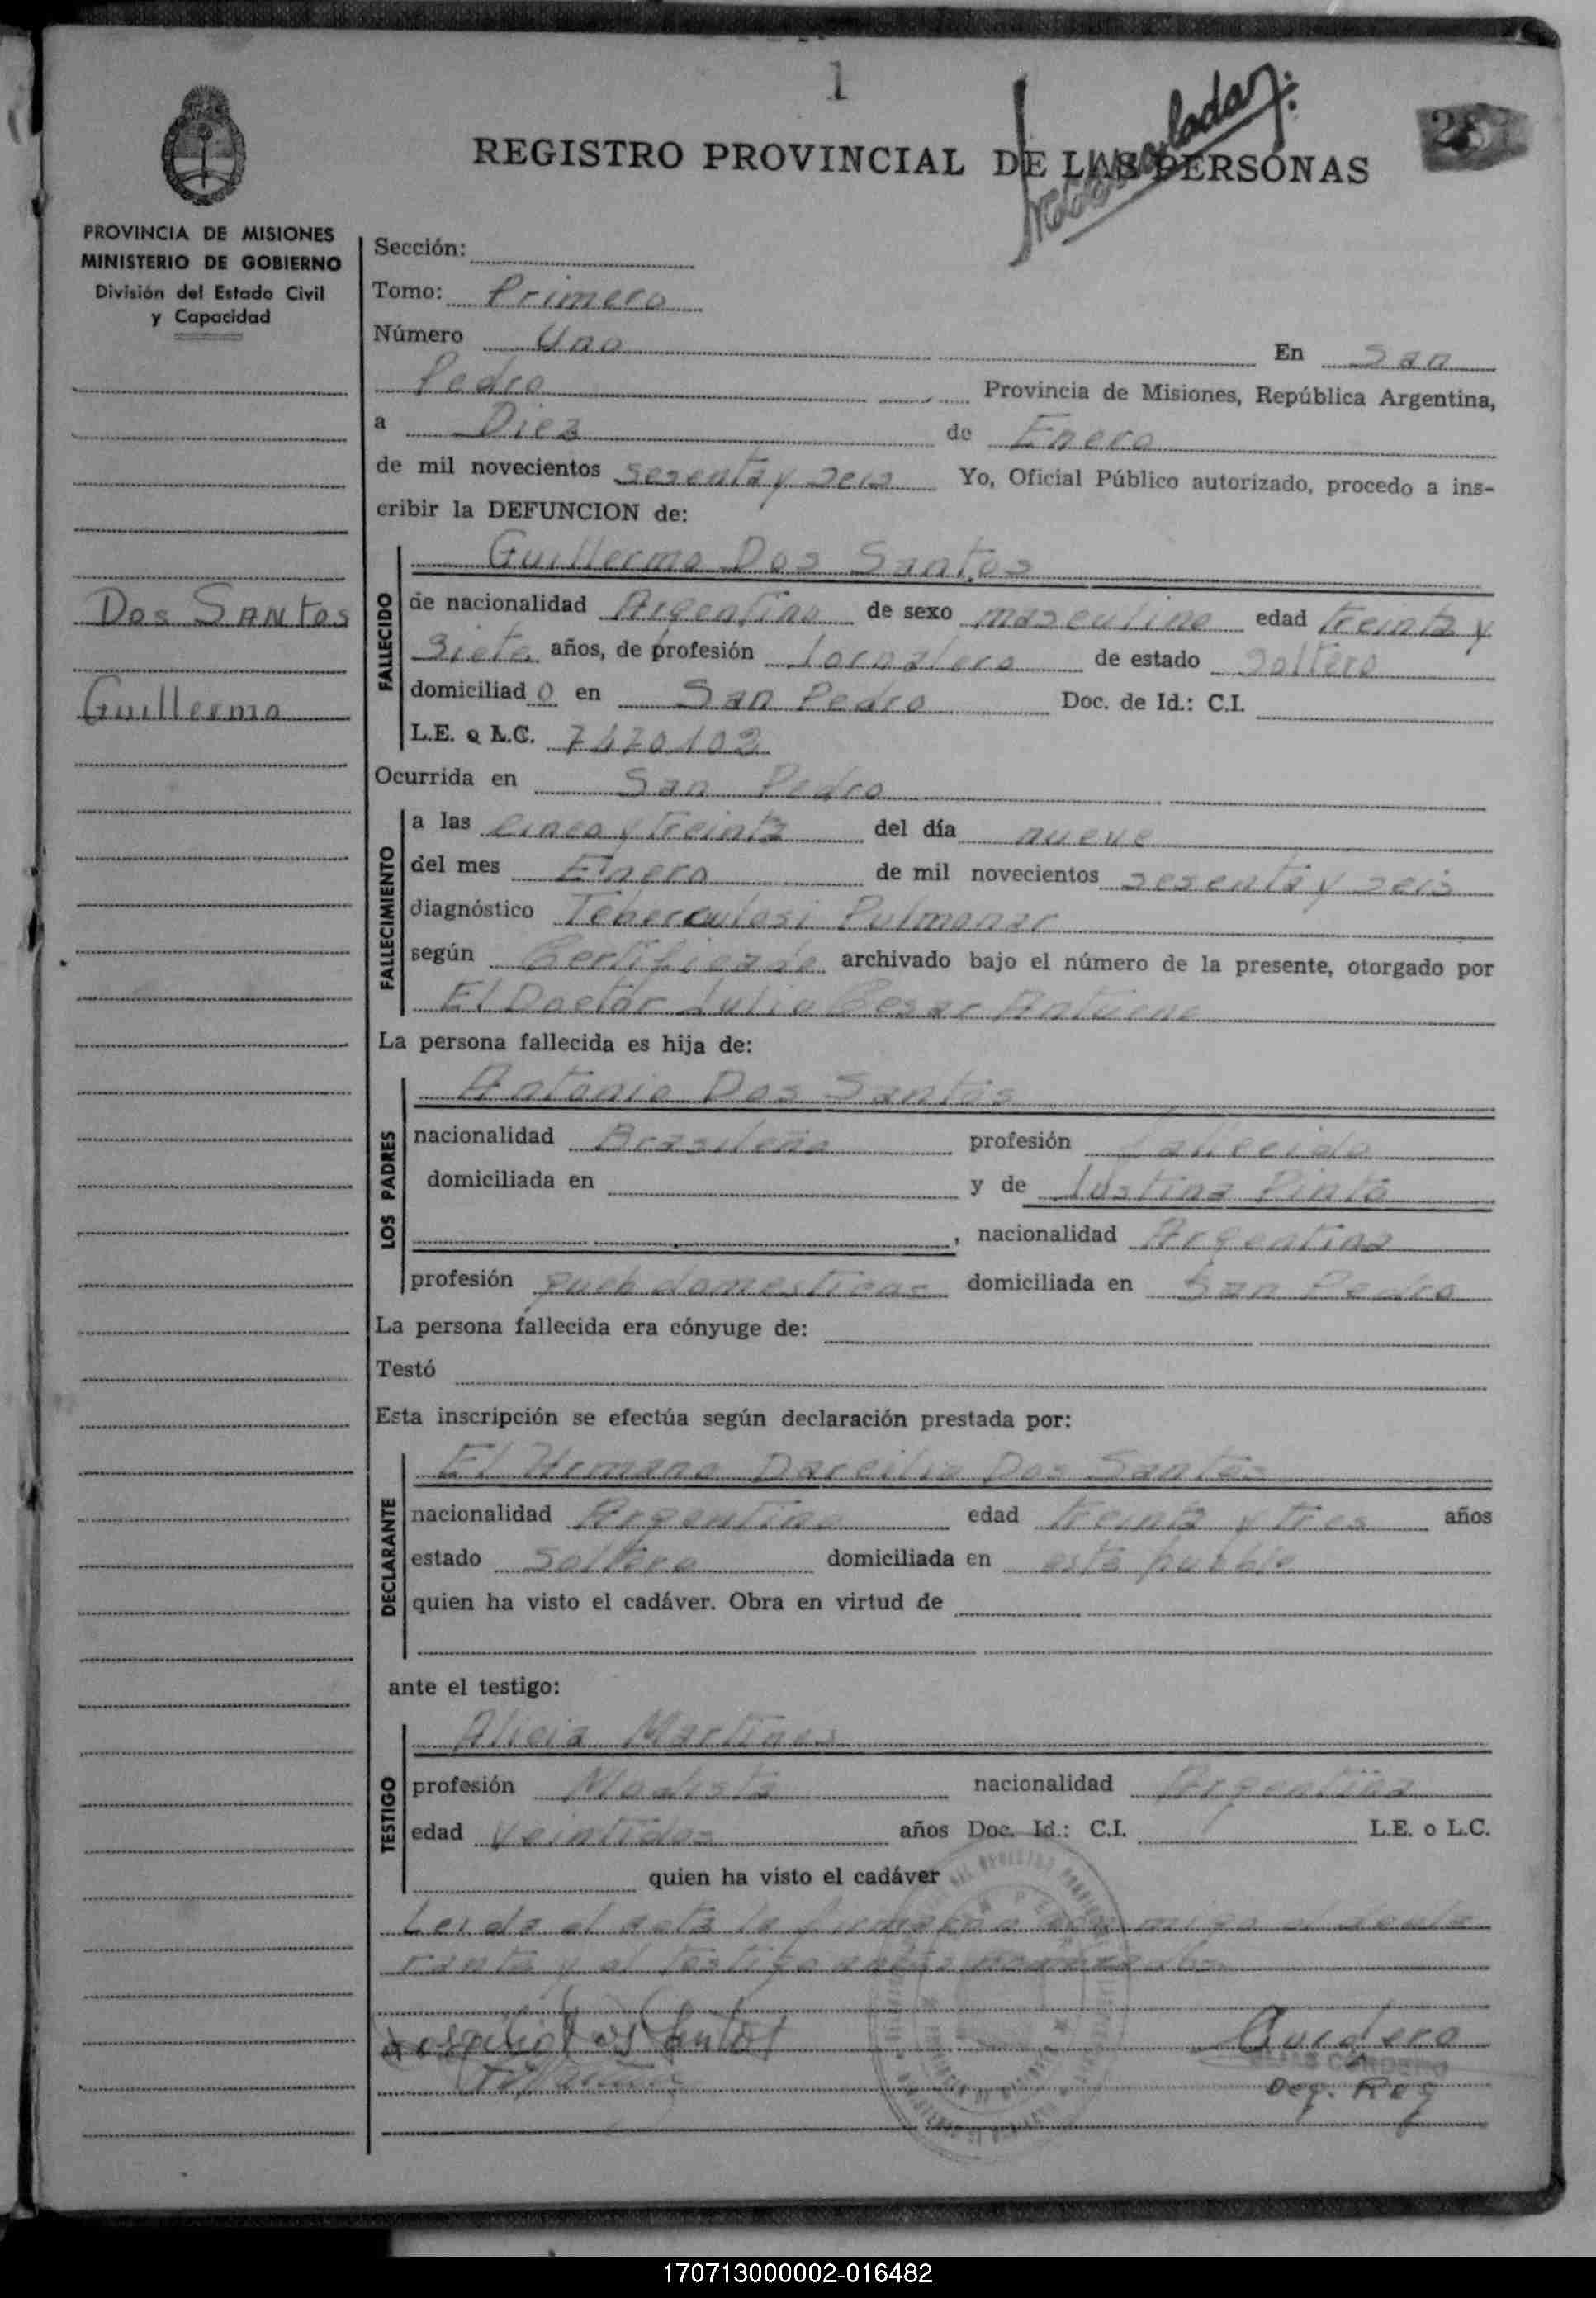 1
REGISTRO PROVINCIAL DE LAS PERSONAS
PROVINCIA DE MISIONES
MINISTERIO DE GOBIERNO
División del Estado Civil
y Capacidad
Dos SANtos
Guillermo
Sección:
Tomo: Primero
Número Uno En San
Pedro Provincia de Misiones, República Argentina,
a Diez de Enero
de mil novecientos sesenta y seis Yo, Oficial Público autorizado, procedo a ins-
cribir la DEFUNCION de:
FALLECIDO
Guillermo Dos Santos
de nacionalidad Argentino de sexo masculino edad treinta y
Siete años, de profesión Jornalero de estado soltero
domiciliad o en San Pedro Doc. de Id.: C.I.
L.E. o L.C.
Ocurrida en San Pedro
FALLECIMIENTO
a las cinco y treinta del día nueve
del mes Enero de mil novecientos sesenta y seis
diagnóstico Teberculosi Pulmonar
según Certificado archivado bajo el número de la presente, otorgado por
El Doctor Julio Cesar
La persona fallecida es hija de:
LOS PADRES
Antonio Dos Santos
nacionalidad Brasileña profesión fallecido
domiciliada en y de Justina Pinto
, nacionalidad Argentina
profesión queh domesticas domiciliada en San Pedro
La persona fallecida era cónyuge de:
Testó
Esta inscripción se efectúa según declaración prestada por:
DECLARANTE
El Hrmano Dos Santos
nacionalidad Argentino edad treinta y tres años
estado Soltero domiciliada en este pueblo
quien ha visto el cadáver. Obra en virtud de
ante el testigo:
TESTIGO
Alicia Martines
profesión Modista nacionalidad Argentina
edad Veintidos años Doc. Id.: C.I. L.E. o L.C.
quien ha visto el cadáver
Leida el acta la firmaron el decla
rante y el testigo
Dos Santos
Cordero
ELIAS CORDERO
170713000002-016482